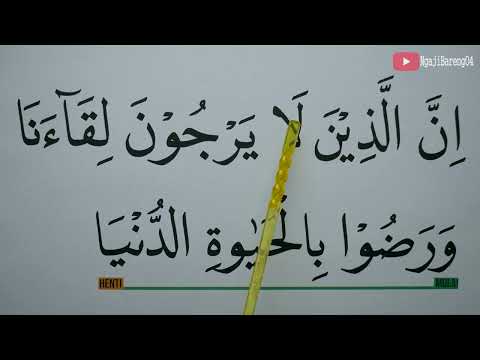 NgajiBareng04
اِنَّ الَّذِيْنَ لَا يَرْجُوْنَ لِقَاۤءَنَا
وَرَضُوْا بِالْحَيٰوةِ الدُّنْيَا
HENTI MULAI